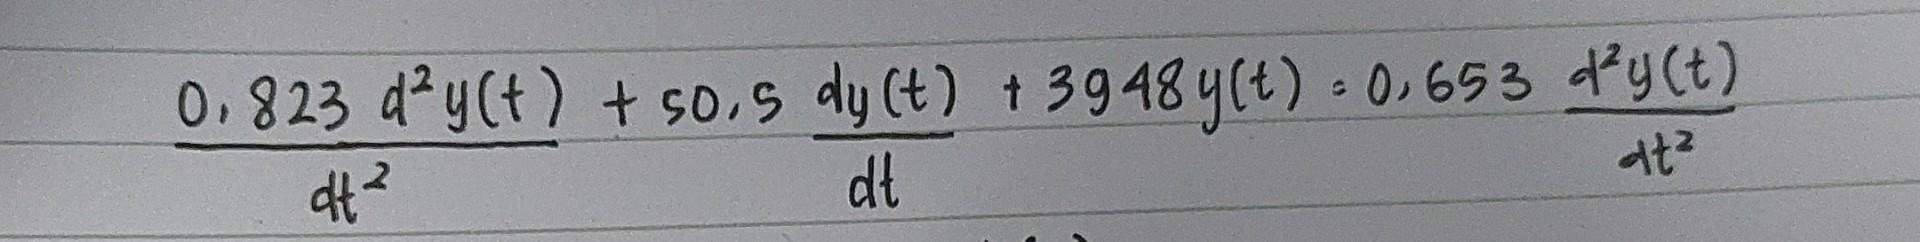 0,823 d²y(t)/dt² + 50,5 dy(t)/dt + 3948y(t) = 0,653 d²y(t)/dt²